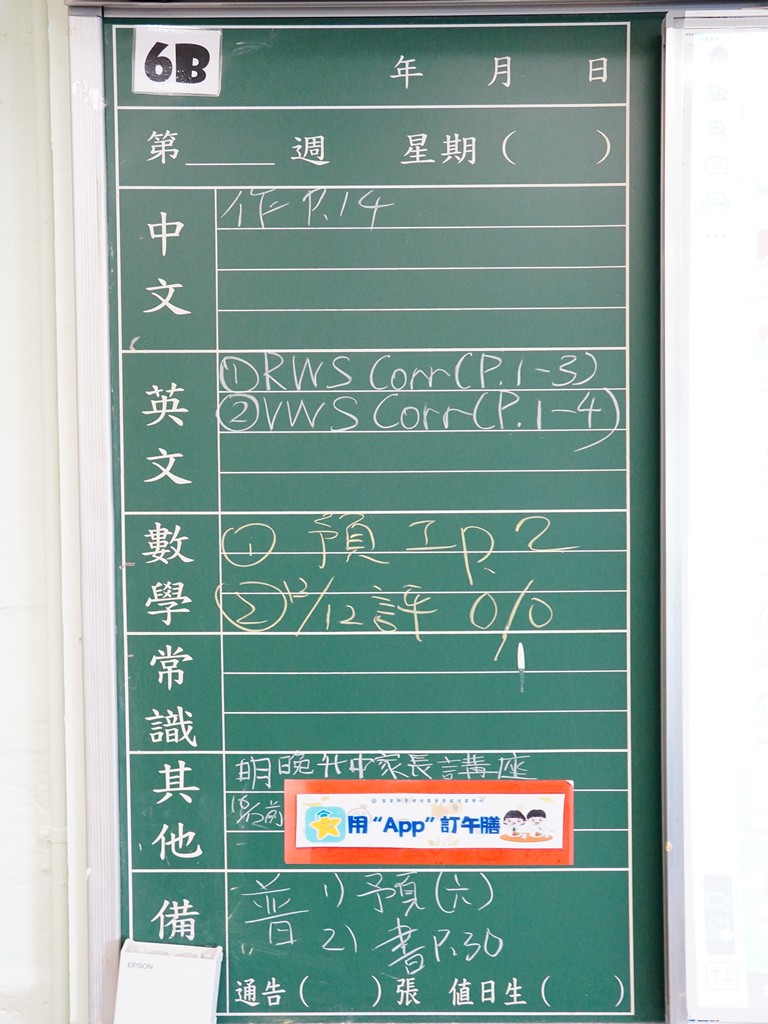 6B
年 月 日
第 週 星期( )
中文
作 P.14
英文
①RWS Corr(P.1-3)
②VWS Corr(P.1-4)
數學
① 預 工P.2
② 12/12評 0/0
常識
其他
明晚升中家長講座
用“App”訂午膳
備
普 1) 預(六)
2) 書P.30
通告( )張 值日生( )
EPSON